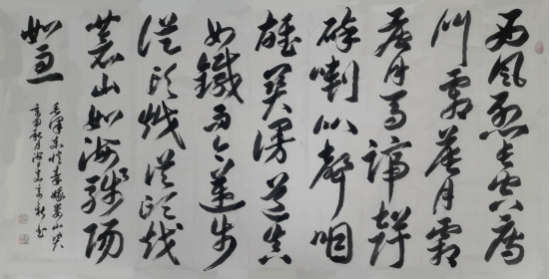 西风烈长空雁
叫霜晨月霜
晨月马蹄声
碎喇叭声咽
雄关漫道真
如鐵而今迈步
从头越从头越
苍山如海残阳
如血
毛泽东忆秦娥娄山关